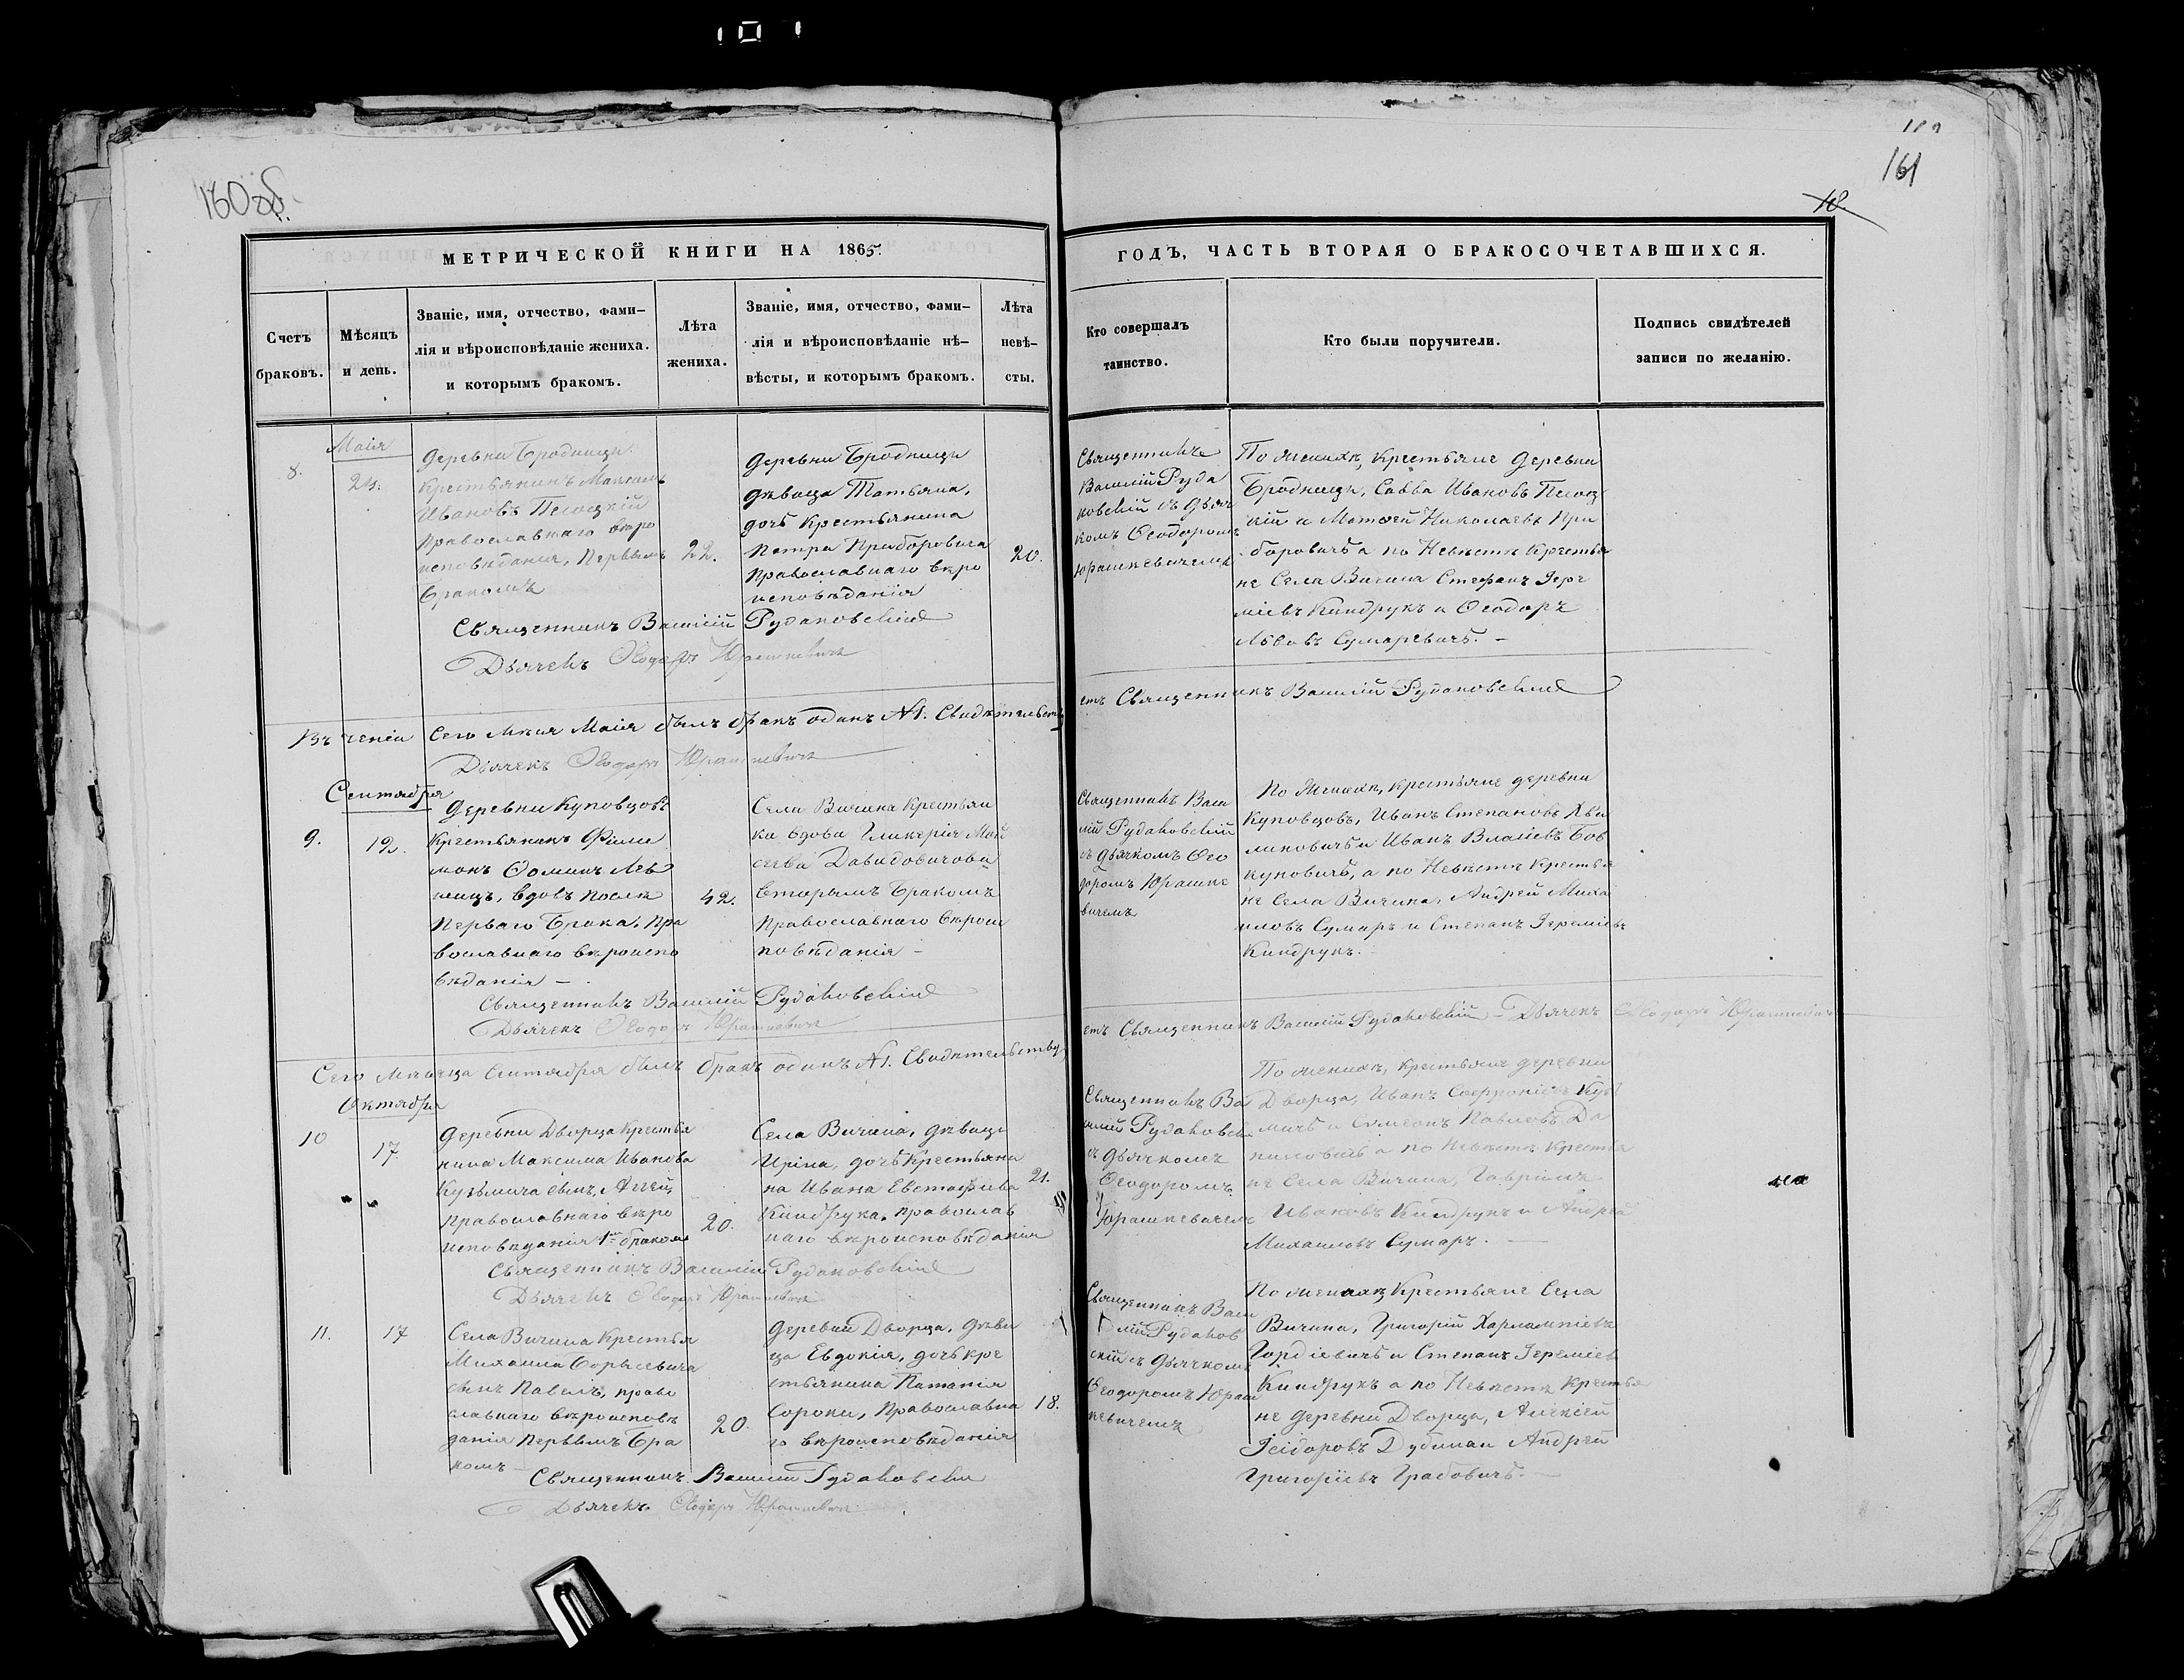 160 об.
161
18.
МЕТРИЧЕСКОЙ КНИГИ НА 1865.
ГОДЪ, ЧАСТЬ ВТОРАЯ О БРАКОСОЧЕТАВШИХСЯ.
Счетъ
браковъ.
Мѣсяцъ
и день.
Званіе, имя, отчество, фами-
лія и вѣроисповѣданіе жениха.
и которымъ бракомъ.
Лѣта
жениха.
Званіе, имя, отчество, фами-
лія и вѣроисповѣданіе нѣ-
вѣсты, и которымъ бракомъ.
Лѣта
невѣ-
сты.
Кто совершалъ
таинство.
Кто были поручители.
Подпись свидѣтелей
записи по желанію.
8.
Маія
Деревни Бродницы
Крестьянинъ Максимъ
Ивановъ Песоцкій
Православнаго вѣро
исповѣданія, Первымъ
бракомъ
22.
Деревни Бродницы
дѣвица Татьяна,
дочь Крестьянина
Петра Приборовича
Православнаго вѣро
исповѣданія
20.
Священникъ
Василій Руда
ковскій съ дьяч
комъ Ѳеодоромъ
Юрашкевичемъ
По женихѣ, Крестьяне деревни
Бродницы, Савва Ивановъ Песоц
кій и Матѳей Николаевъ При
боровичъ а по Невѣстѣ Крестья
не Села Вичина Стефанъ Іере
міевъ Киндрукъ и Ѳеодоръ
Львовъ Сумаревичъ. –
Священникъ Василій Рудаковскій
Дьячекъ Ѳеодоръ Юрашкевичъ
Въ теченіи Сего Мѣсяца Маія былъ бракъ одинъ №1. Свидѣтельству
етъ Священникъ Василій Рудаковскій
Дьячекъ Ѳеодоръ Юрашкевичъ
Сентября
9.
12.
Деревни Куповцовъ
Крестьянинъ Фили
монъ Ѳоминъ Лев
вдовъ послѣ
Перваго брака, Пра
вославнаго вѣроиспо
вѣданія –
42.
Села Вичина Крестьян
ка вдова Гликерія Мой
сеева Давидовичова
вторымъ бракомъ
Православнаго вѣроис
повѣданія –
Священникъ Васи
лій Рудаковскій
съ дьячкомъ Ѳео
доромъ Юрашке
вичемъ
По Женихѣ, крестьяне деревни
Куповцовъ, Иванъ Степановъ
и Иванъ Власіевъ Бов
куновичъ, а по Невѣстѣ Крестья
не Села Вичина, Андрей Миха
иловъ Сумаръ и Степанъ Іереміевъ
Киндрукъ. –
Священникъ Василій Рудаковскій
Дьячекъ Ѳеодоръ Юрашкевичъ
Сего Мѣсяца Сентября былъ бракъ одинъ №1. Свидѣтельству
етъ Священникъ Василій Рудаковскій – Дьячекъ Ѳеодоръ Юрашкевичъ
Октября
10
17.
Деревни Дворца Крестья
нина Максима Иванова
Кузьмича сынъ,
православнаго вѣро
исповѣданія 1мъ бракомъ
20.
Села Вичина, дѣвица
Ирина, дочь Крестьяни
на Ивана Евстафіева
Киндрука, православ
наго вѣроисповѣданія
21.
Священникъ Ва
силій Рудаковскій
съ дьячкомъ
Ѳеодоромъ
Юрашкевичемъ
По женихѣ, крестьяне деревни
Дворца, Иванъ Софроніевъ Кузь
мичъ и Симеонъ Павловъ Да
ниловичъ а по Невѣстѣ Крестья
не Села Вичина, Гавріилъ
Ивановъ Киндрукъ и Андрей
Михаиловъ Сумаръ. –
Священникъ Василій Рудаковскій
Дьячекъ Ѳеодоръ Юрашкевичъ
11.
17
Села Вичина Крестья
Михаила Борысевича
сынъ Павелъ, право
славнаго вѣроисповѣ
данія первымъ бра
комъ –
20.
Деревни Дворца, дѣви
ца Евдокія, дочь кре
стьянина Потапія
Сороки, Православна
го вѣроисповѣданія
18.
Священникъ Васи
лій Рудаков
скій съ дьячкомъ
Ѳеодоромъ Юраш
кевичемъ
По женихѣ Крестьяне Села
Вичина, Григорій Харлампіевъ
Гордіевичъ и Степанъ Іереміевъ
Киндрукъ а по Невѣстѣ Крестья
не деревни Дворца, Алексѣй
Ісидоровъ и Андрей
Григоріевъ Грабовичъ. –
Священникъ Василій Рудаковскій
Дьячекъ Ѳеодоръ Юрашкевичъ